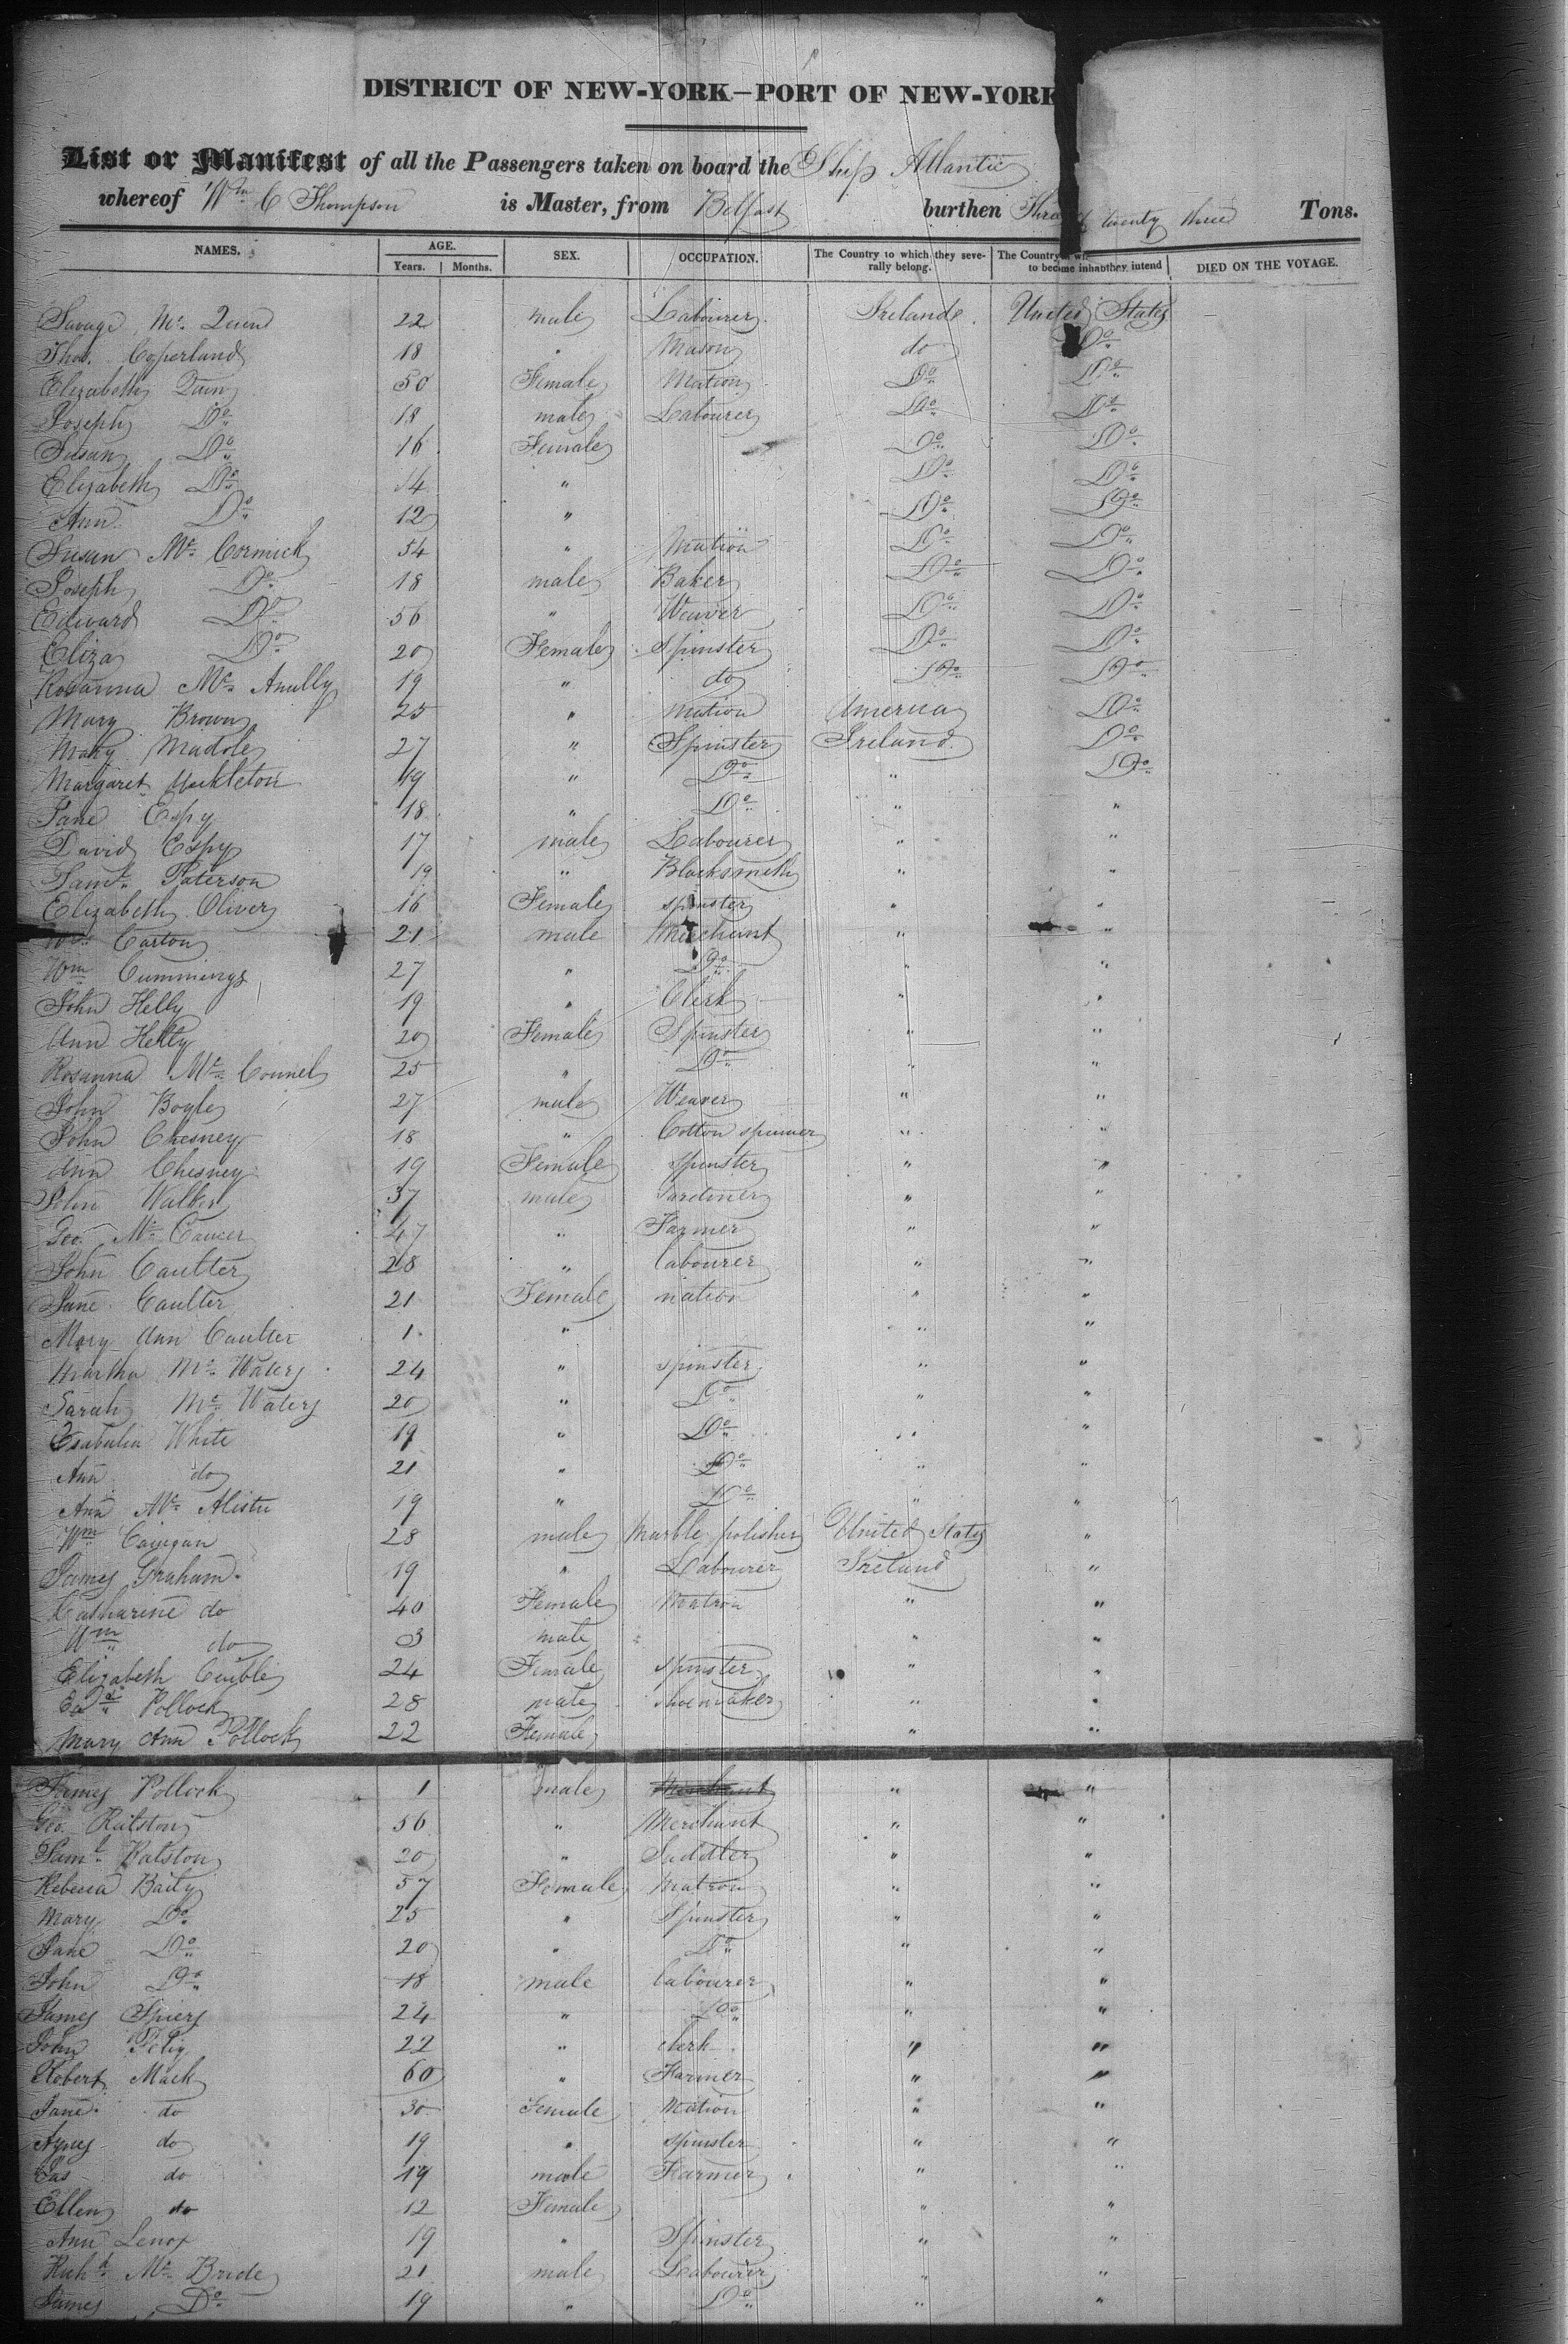 DISTRICT OF NEW-YORK—PORT OF NEW-YORK
List or Manifest of all the Passengers taken on board the Ship Atlantic
whereof Wm C Thompson is Master, from Belfast burthen twenty three Tons.
NAMES. AGE. SEX. OCCUPATION. The Country to which they seve- The Country DIED ON THE VOYAGE.
Years. Months. rally belong. to become inhab they intend
Savage Mc Quend 22 male Labourer Ireland United States
Thos. Coperland 18 " Mason do Do
Elizabeth Quin 50 Female Matron Do Do
Joseph Do 18 male Labourer Do Do
Susan Do 16 Female Do Do
Elizabeth Do 14 " Do Do
Ann Do 12 " Do Do
Susan Mc Cormick 54 " Matron Do Do
Joseph Do 18 male Baker Do Do
Edward Do 56 " Weaver Do Do
Eliza Do 20 Female Spinster Do Do
Rosanna Mc Anully 19 " do Do Do
Mary Brown 25 " matron America Do
Mary Madole 27 " Spinster Ireland Do
Margaret 19 " Do " Do
Jane Espy 18 " Do " "
David Espy 17 male Labourer " "
Saml Paterson 19 " Blacksmith " "
Elizabeth Oliver 16 Female spinster " "
Wm Carton 21 male Merchant " "
Wm Cummings 27 " Do " "
John Kelly 19 " Clerk " "
Ann Kelly 20 Female Spinster " "
Rosanna Mc Connel 25 " Do " "
John Boyle 27 male Weaver " "
John Chesney 18 " Cotton spinner " "
Ann Chesney 19 Female spinster " "
John Walker 37 male Gardiner " "
Geo. Mc 47 " Farmer " "
John Caulter 28 " labourer " "
Jane Caulter 21 Female matron " "
Mary Ann Caulter 1 " " "
Martha Mc Waters 24 " spinster " "
Sarah Mc Waters 20 " Do " "
Esabulia White 19 " Do " "
Ann do 21 " Do " "
Ann Mc Alister 19 " Do " "
Wm 28 male Marble polisher United States "
James Graham 19 " Labourer Ireland "
Catharine do 40 Female Matron " "
Wm do 03 male " "
Elizabeth 24 Female spinster " "
Edd Pollock 28 male shoemaker " "
Mary Ann Pollock 22 Female " "
James Pollock 1 male Merchant " "
Geo Ralston 56 " Merchant " "
Saml Ralston 20 " Saddler " "
Rebecca Baily 57 Female Matron " "
Mary Do 25 " Spinster " "
Jane Do 20 " Do " "
John Do 18 male labourer " "
James Spiers 24 " Do " "
John 22 " clerk " "
Robert Mack 60 " Farmer " "
Jane do 30 Female Matron " "
Agnes do 19 " spinster " "
do 19 male Farmer " "
Ellen do 12 Female " "
Ann Lenox 19 " Spinster " "
Richd Mc Bride 21 male Labourer " "
James Do 19 " Do " "